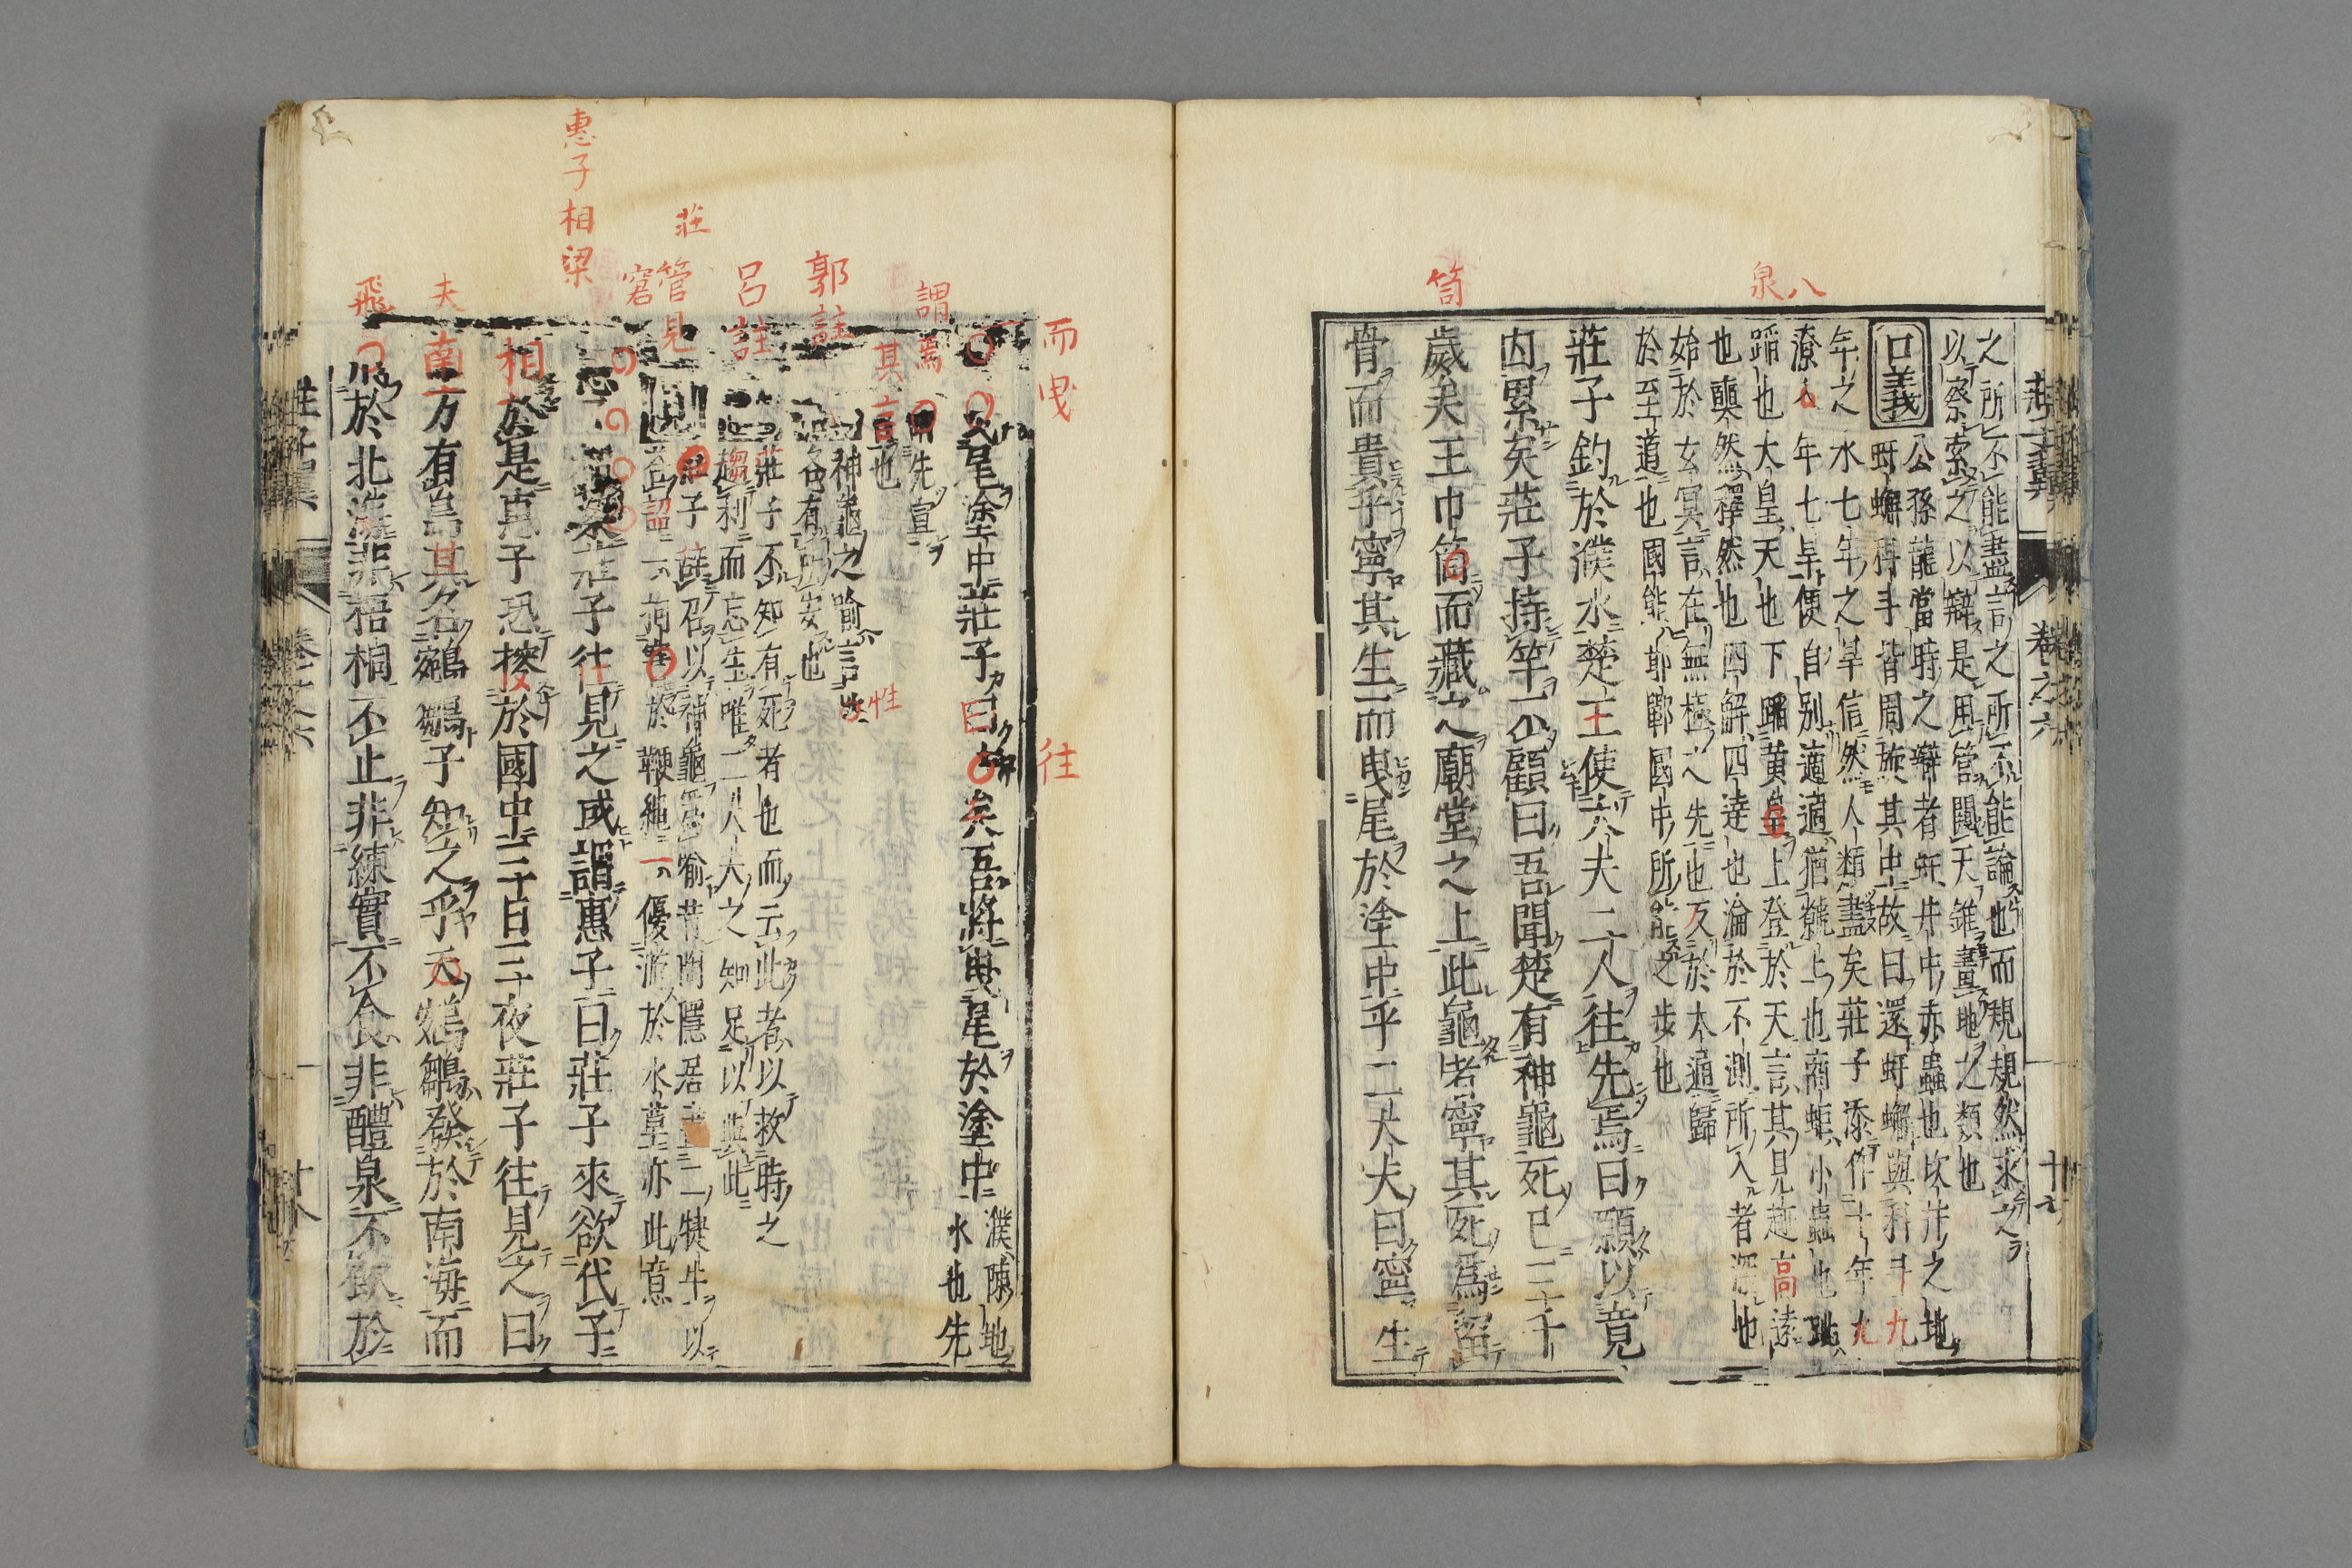 莊子翼
卷之六
八
泉
筒
之所不能盡言之所不能論也而規規然求之
以察索之以辯是用管闚天錐畫地之類也
口義
公孫龍當時之辯者蚈井中赤蟲也坎井之地
蚈蠏科斗皆周旋其中故曰還蚈蠏與科斗九
年之水七年之旱信然人類盡矣莊子添作十年九
潦八年七旱便自別適適猶
也商蚷小蟲也跐
蹈也大皇天也下蹈黃泉上登於天言其見趣高遠
也奭然釋然也四解四達也淪於不測所入者深也
始於玄冥言在無極之先也反於大通歸
於至道也國能邯鄲國中所能之步也
莊子釣於濮水楚王使大夫二人往先焉曰願以竟
内累矣莊子持竿不顧曰吾聞楚有神龜死已三千
歲矣王巾笥而藏之廟堂之上此龜者寧其死爲留
骨而貴乎寧其生而曳尾於塗中乎二大夫曰寧生
而曳
往
尾塗中莊子曰往矣吾將曳尾於塗中
濮陳地
水也先
謂焉
先宣
其言也
郭註
神龜之喻言性
各有所安也
性
呂註
莊子不知有死者也而云此者以救時之
趨利而忘生唯二大夫之知足以與此
管見
莊
窘
莊子辭召以神龜爲喻昔陶隱居畫二犢牛以
答詔一拘
於鞭繩一優游於水草亦此意
惠子相梁
莊子往見之或謂惠子曰莊子來欲代子
相於是惠子恐搜於國中三日三夜莊子往見之曰
夫
南方有鳥其名鵷鶵子知之乎夫鵷鶵發於南海而
飛
飛於北海非梧桐不止非練實不食非醴泉不飲於